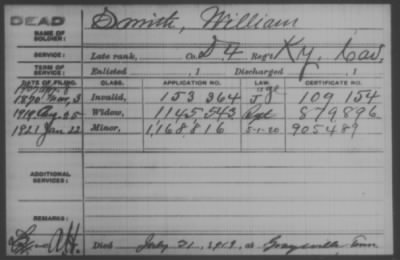 DEAD
NAME OF SOLDIER: Smith, William
SERVICE: Late rank, Co. D 4 Reg't Ky. Cav.
TERM OF SERVICE: Enlisted , 1 Discharged , 1
DATE OF FILING. CLASS. APPLICATION NO. LAW. CERTIFICATE NO.
1907 age
1870 Invalid, 153 364 109 154
1919 Aug. 25 Widow, 1145,543 879,896
1921 Jan 22 Minor, 1,168,816 5-1-20 905489
ADDITIONAL SERVICES:
REMARKS:
Died July 21, 1919, at Graysville, Tenn.